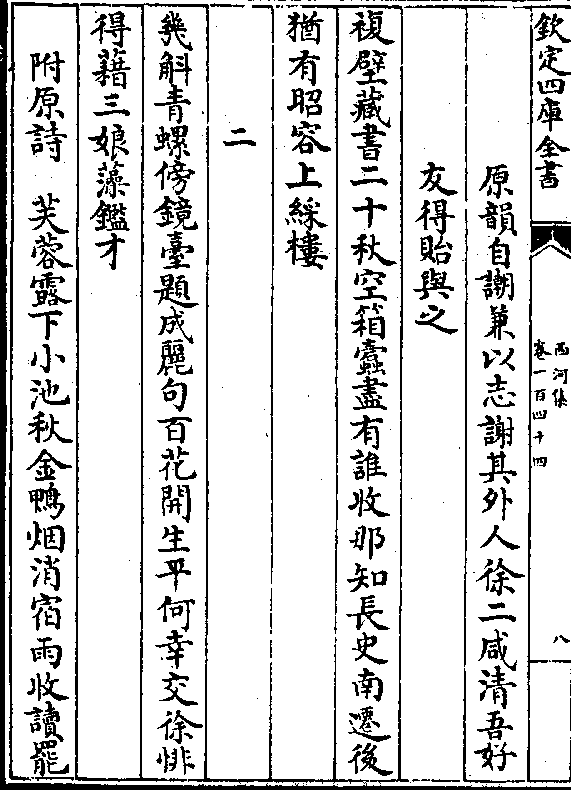 欽定四庫全書
西河集
卷一百四十四
八
原韻自謿兼以志謝其外人徐二咸清吾好
友得貽與之
複壁藏書二十秋空箱蠧盡有誰收那知長史南遷後
猶有昭容上綵樓
二
幾斛青螺傍鏡臺題成麗句百花開生平何幸交徐悱
得藉三娘藻鑑才
附原詩　芙蓉露下小池秋金鴨烟消宿雨收讀罷